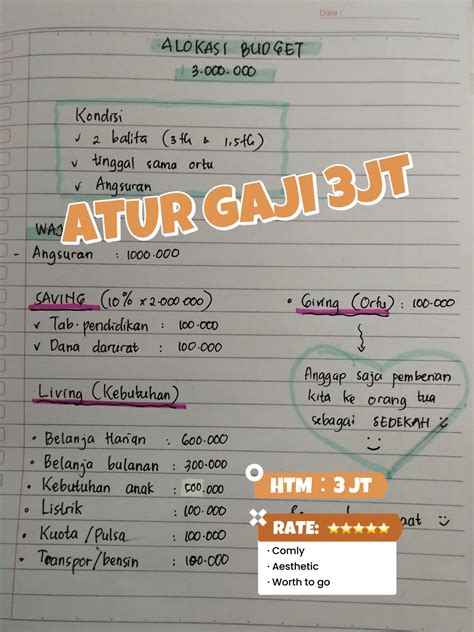 Date :
ALOKASI BUDGET
3.000.000
Kondisi
✓ 2 balita (3th & 1,5th)
✓ tinggal sama ortu
✓ Angsuran
ATUR GAJI 3JT
- Angsuran : 1000.000
SAVING (10% x 2.000.000)
✓ Tab. pendidikan : 100.000
✓ Dana darurat : 100.000
• Giving (Ortu) : 100.000
Anggap saja pemberian
kita ke orang tua
sebagai SEDEKAH
Living (Kebutuhan)
• Belanja Harian : 600.000
• Belanja bulanan : 300.000
• Kebutuhan anak : 500.000
• Listrik : 100.000
• Kuota /Pulsa : 100.000
• Transpor/bensin : 100.000
HTM : 3 JT
RATE: ★★★★★
· Comly
· Aesthetic
· Worth to go